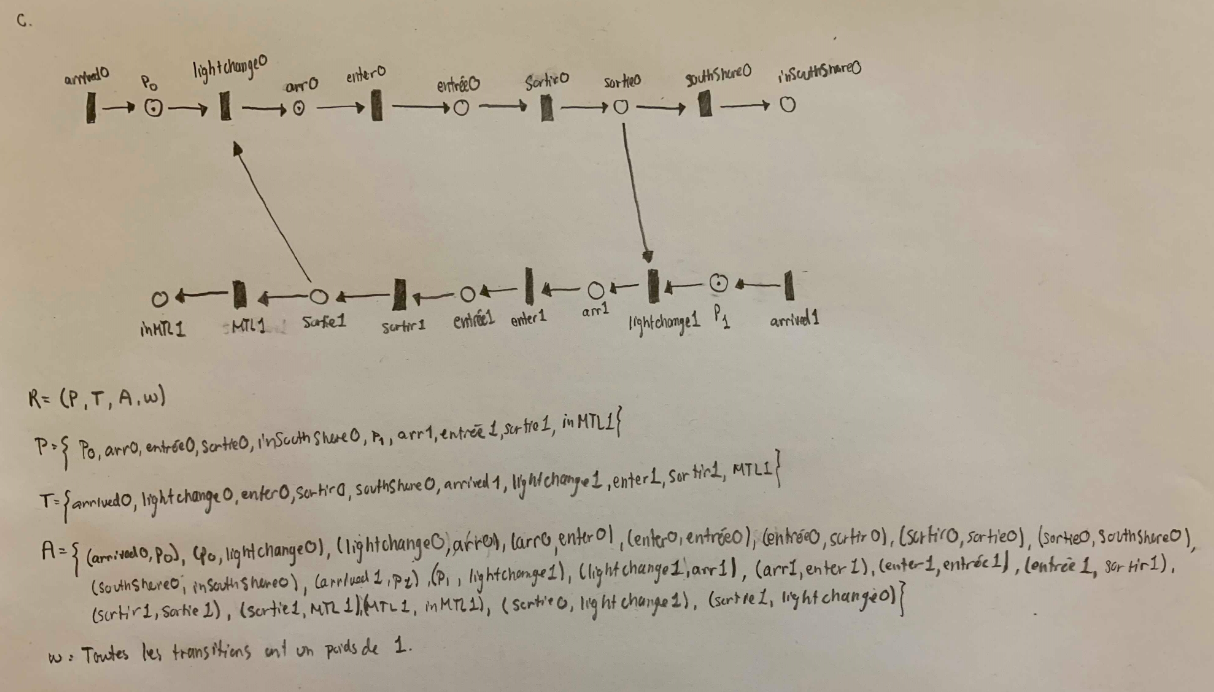 C.
arrived0 P0 lightchange0 arr0 enter0 entrée0 Sortir0 sortie0 southShore0 inSouthShore0
inMTL1 MTL1 Sortie1 sortir1 entrée1 enter1 arr1 lightchange1 P1 arrived1
R= (P, T, A, w)
P={ P0, arr0, entrée0, sortie0, inSouthShore0, P1, arr1, entrée1, sortie1, inMTL1}
T={arrived0, lightchange0, enter0, sortir0, southShore0, arrived1, lightchange1, enter1, sortir1, MTL1}
A={ (arrived0, p0), (p0, lightchange0), (lightchange0, arr0), (arr0, enter0), (enter0, entrée0), (entrée0, sortir0), (sortir0, sortie0), (sortie0, SouthShore0),
(southShore0, inSouthShore0), (arrived1, p1), (P1, lightchange1), (lightchange1, arr1), (arr1, enter1), (enter1, entrée1), (entrée1, sortir1),
(sortir1, sortie1), (sortie1, MTL1), (MTL1, inMTL1), (sortie0, lightchange1), (sortie1, lightchange0)}
w: Toutes les transitions ont un poids de 1.